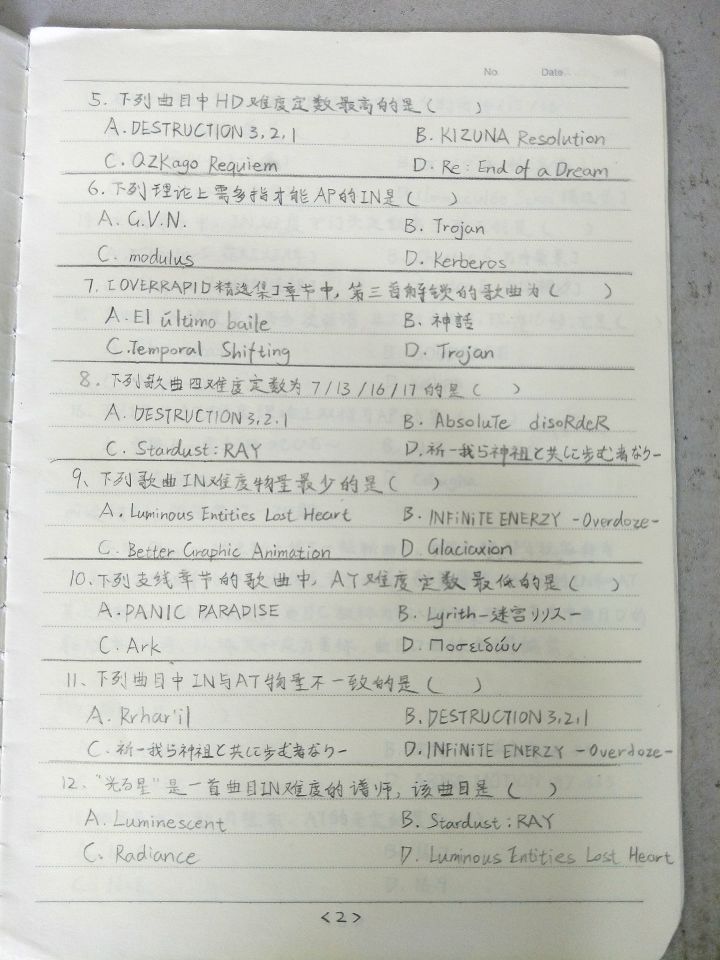 No.    Date
5. 下列曲目中HD难度定数最高的是(    )
A. DESTRUCTION 3,2,1    B. KIZUNA Resolution
C. QZKago Requiem    D. Re:End of a Dream
6. 下列理论上需多指才能AP的IN是(    )
A. G.V.N.    B. Trojan
C. modulus    D. Kerberos
7. 「OVERRAPID精选集」章节中, 第三首解锁的歌曲为(    )
A. El último baile    B. 神話
C. Temporal Shifting    D. Trojan
8. 下列歌曲四难度定数为7/13/16/17的是(    )
A. DESTRUCTION 3,2,1    B. AbsoluTe disoRdeR
C. Stardust:RAY    D. 祈-我ら神祖と共に歩む者なり-
9、下列歌曲IN难度物量最少的是(    )
A. Luminous Entities Lost Heart    B. INFiNiTE ENERZY -Overdoze-
C. Better Graphic Animation    D. Glaciaxion
10、下列支线章节的歌曲中, AT难度定数最低的是(    )
A. PANIC PARADISE    B. Lyrith-迷宮リリス-
C. Ark    D. Ποσειδών
11、下列曲目中IN与AT物量不一致的是(    )
A. Rrhar'il    B. DESTRUCTION 3,2,1
C. 祈-我ら神祖と共に歩む者なり-    D. INFiNiTE ENERZY -Overdoze-
12、"光る星"是一首曲目IN难度的谱师, 该曲目是(    )
A. Luminescent    B. Stardust:RAY
C. Radiance    D. Luminous Entities Lost Heart
<2>